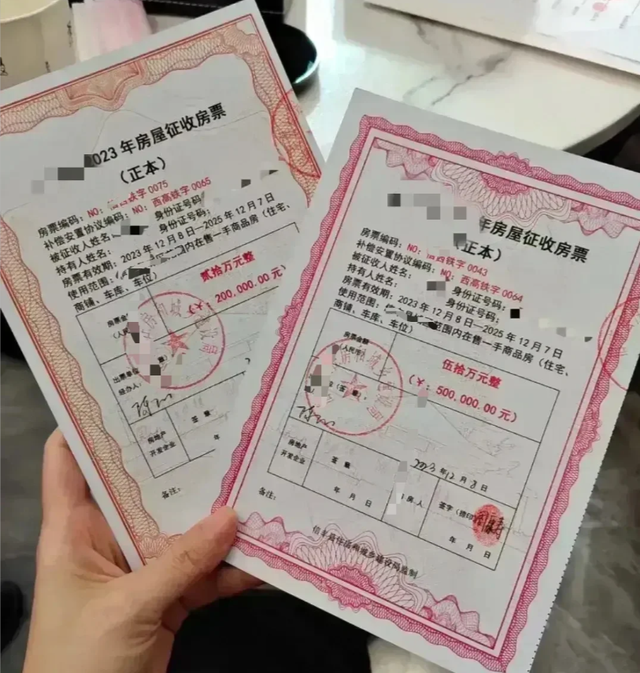 2023年房屋征收房票
(正本)
房票编码: NO: 铁字 0075
补偿安置协议编码: NO: 西高铁字 0065
被征收人姓名: 身份证号码:
持有人姓名: 身份证号码:
房票有效期: 2023年12月8日-2025年12月7日
使用范围: 范围内在售一手商品房 (住宅、
商铺、车库、车位)
房票金
(人民
贰拾万元整
(¥: 200,000.00元)
出票单
经办人:
签章:
房地产
开发企业
签章:
年
备注:
年房屋征收房票
(正本)
房票编码: NO: 西铁字 0043
补偿安置协议编码: NO: 西高铁字 0064
被征收人姓名: 身份证号码:
持有人姓名: 身份证号码:
房票有效期: 2023年12月8日-2025年12月7日
使用范围: 范围内在售一手商品房 (住宅、
商铺、车库、车位)
房票金额
(人民币)
伍拾万元整
(¥: 500,000.00元)
签章:
2023年12月8日
房地产
开发企业
签章
年 月 日
房人
签字 (捺印
年 月 日
备注: